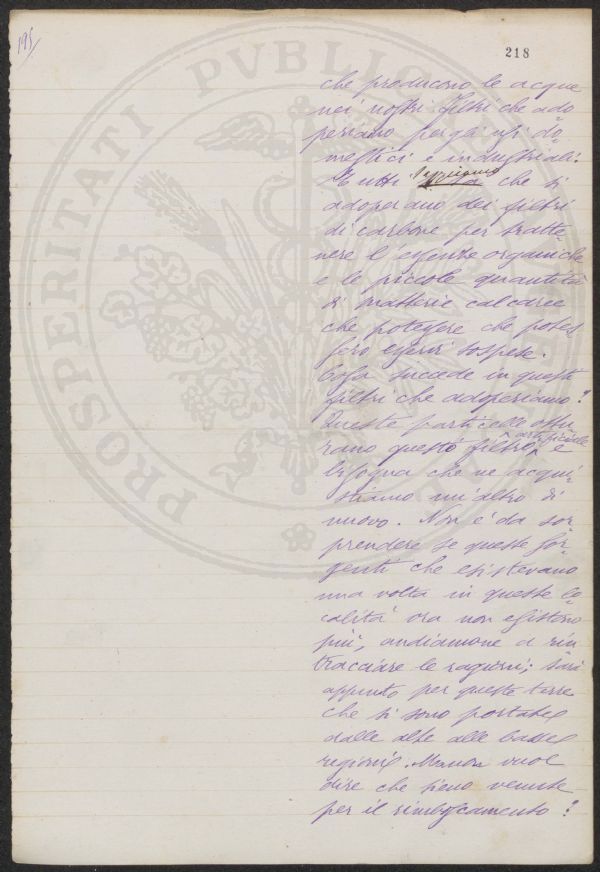 195/
218
PROSPERITATI PVBLICAE
che producono le acque
nei nostri filtri che ado=
periamo per gli usi do=
mestici e industriali.
Tutti sappiamo che si
adoperano dei filtri
di carbone per tratte=
nere l'essenze organiche
e le piccole quantità
di matterie calcaree
che potessere che potes
sero esservi sospese.
Cosa succede in questi
filtri che adoperiamo?
Queste particelle ottu=
rano questo filtro artificiale e
bisogna che ne acqui=
stiamo un'altro di
nuovo. Non è da sor=
prendere se queste sor=
genti che esistevano
una volta in queste lo=
calità ora non esistono
più, andiamone a rin
tracciare le ragioni; sarà
appunto per queste terre
che si sono portate
dalle alte alle basse
regioni. Ma non vuol
dire che sieno venute
per il rimboscamento?